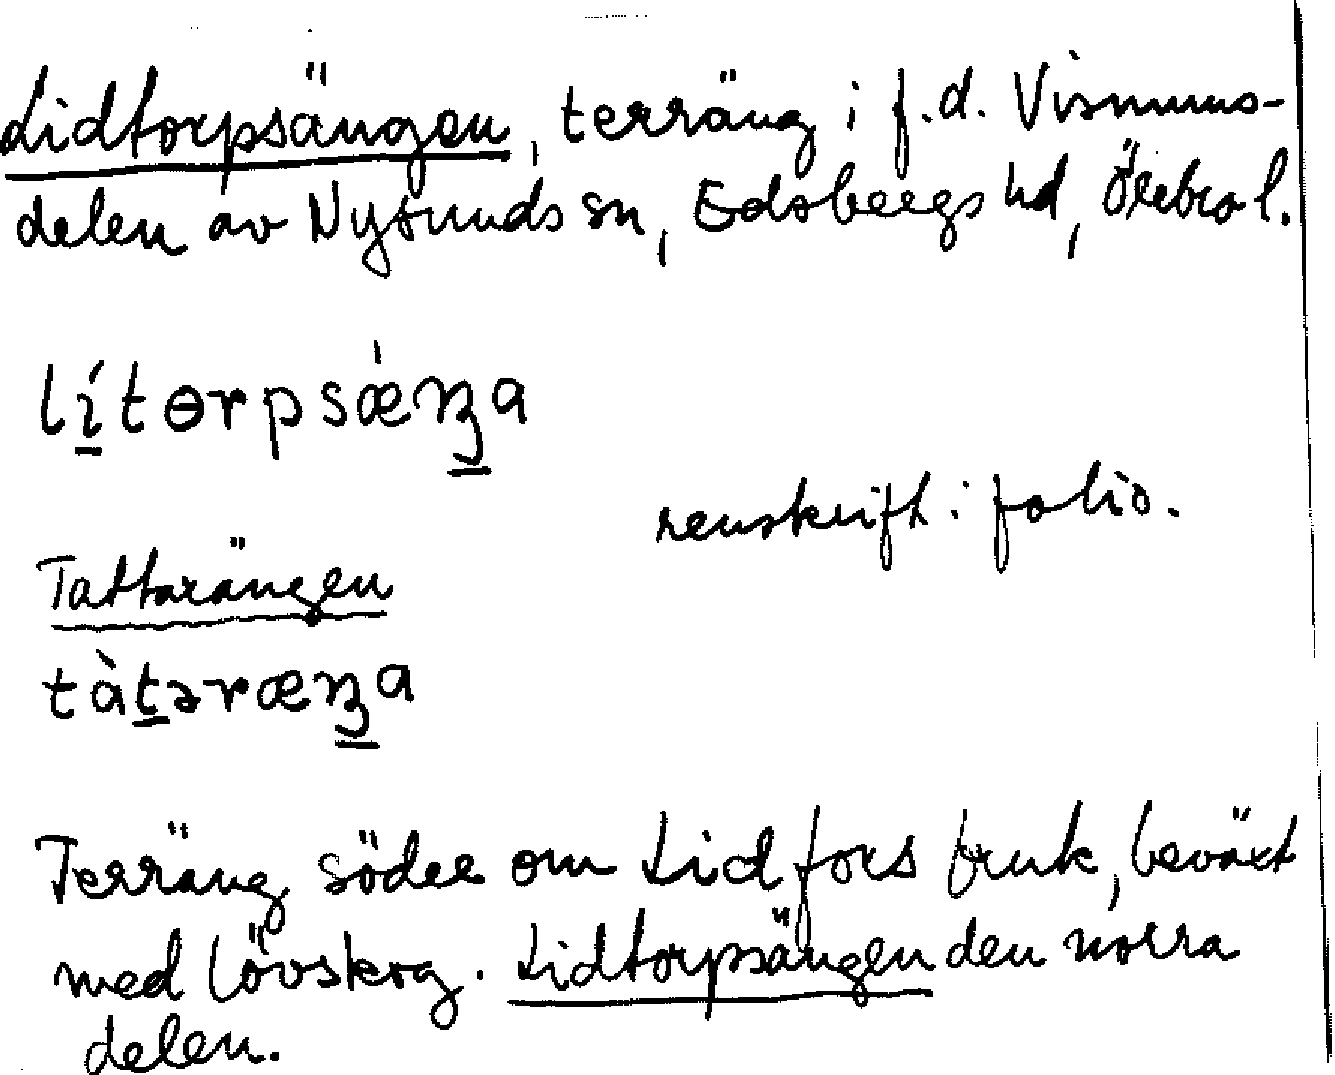 Lidtorpsängen, terräng i f.d. Visnums-
delen av Nysunds sn, Edsbergs hd, Örebro l.
lítɵrpsǽŋa
renskrift i folio.
Tattarängen
tàtəræŋa
Terräng söder om Lidfors bruk, beväxt
med lövskog. Lidtorpsängen den norra
delen.